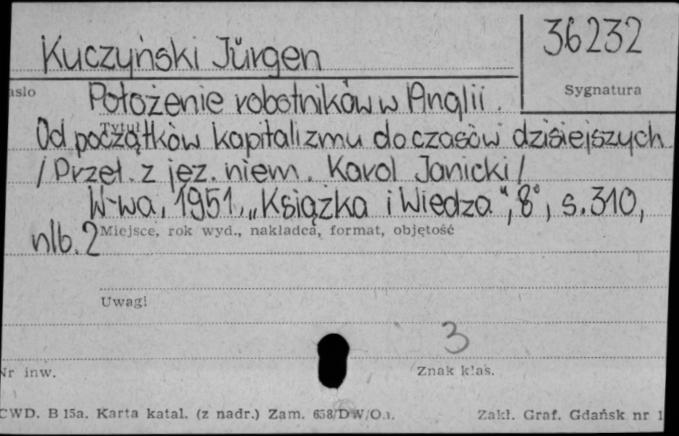 Kuczyński Jürgen
36232
asło
Sygnatura
Położenie robotników w Anglii.
Tytuł
Od początków kapitalizmu do czasów dzisiejszych
/Przeł. z jęz. niem. Karol Janicki/
W-wa, 1951, „Książka i Wiedza", 8°, s. 310,
nlb. 2
Miejsce, rok wyd., nakładca, format, objętość
Uwagi
3
Nr inw.
Znak klas.
CWD. B 15a. Karta katal. (z nadr.) Zam. 658/DW/O
Zakł. Graf. Gdańsk nr 1